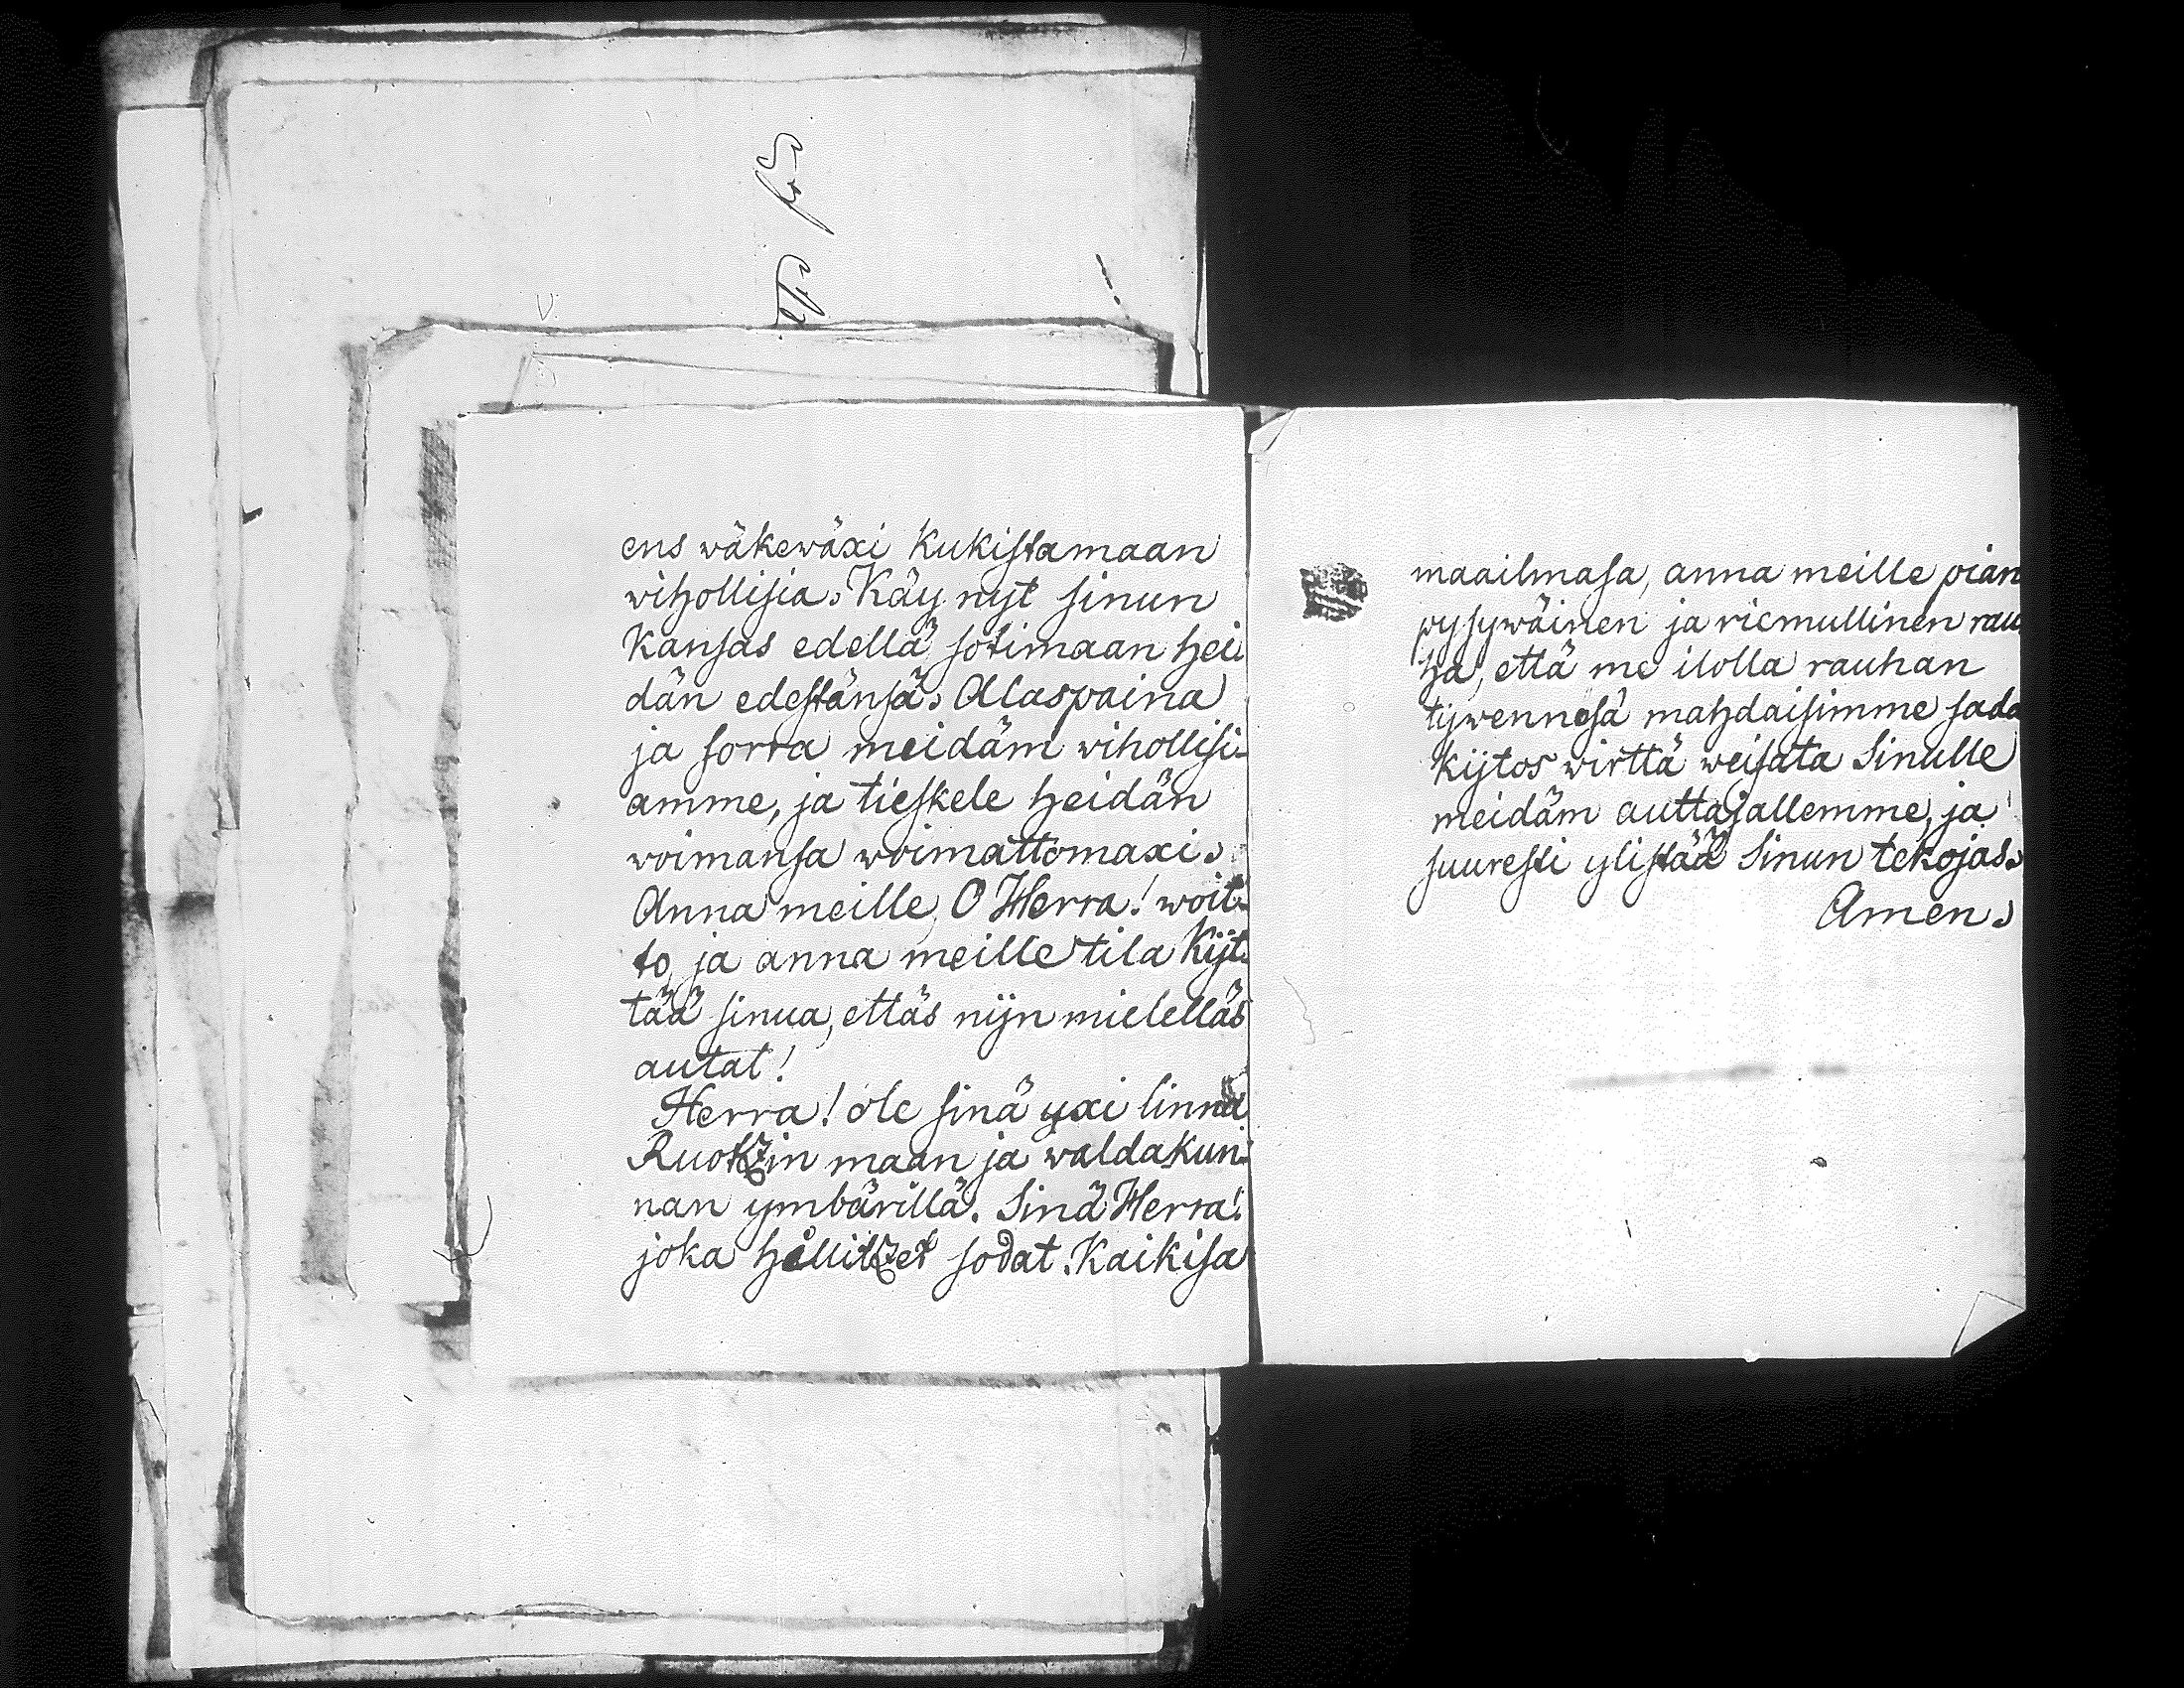 ens wäkewäxi kukistamaan
vihollisia. Käy nyt sinun
Kansas edellä sotimaan hei-
dän edestänsä. Alaspaina
ja sorra meidäm wihollisi-
amme, ja tieskele heidän
voimansa woimattomaxi.
Anna meille, O Herra! woit-
to, ja anna meille tila kijt-
tää sinua, ettäs nijn mielelläs
autat!
Herra! ole sinä yxi linna
Ruotzin maan ja waldakun-
nan ymbärillä. Sinä Herra!
joka hillitzet sodat. Kaikisa
maailmasa, anna meille pian
pysywäinen ja riemullinen rau-
ha, että me ilolla rauhan
tywennesä mahdaisimme sada
kijtos wirttä weisata Sinulle
meidäm auttajallemme, ja
suuresti ylistää Sinun tekojas.
Amen.